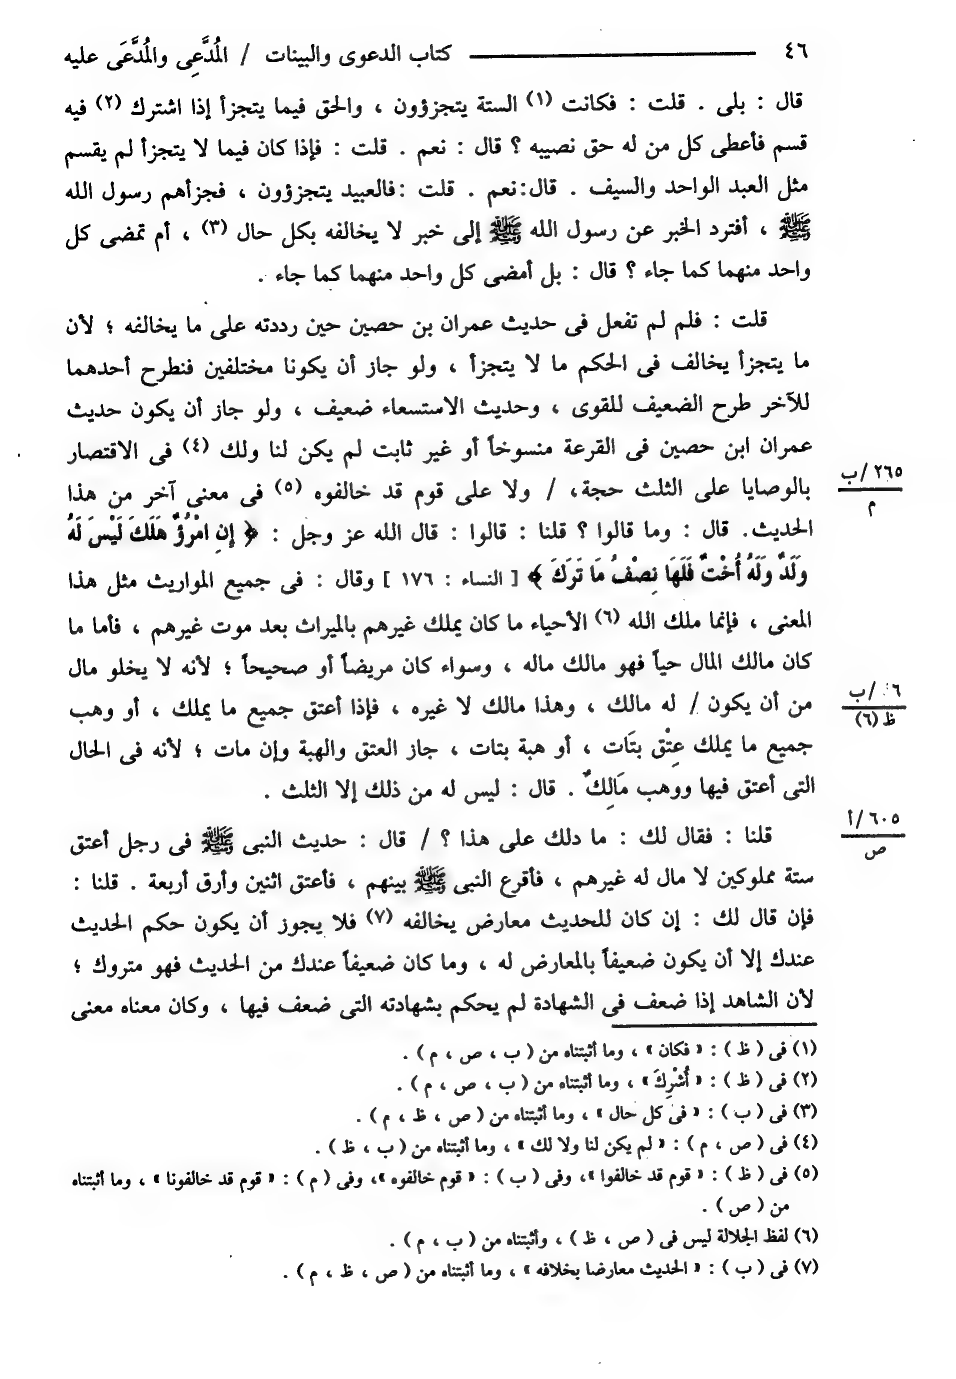 ٤٦ ــــــــــــ كتاب الدعوى والبينات / المُدَّعِى والمُدَّعَى عليه
قال : بلى . قلت : فكانت (١) الستة يتجزؤون ، والحق فيما يتجزأ إذا اشترك (٢) فيه
قسم فأعطى كل من له حق نصيبه ؟ قال : نعم . قلت : فإذا كان فيما لا يتجزأ لم يقسم
مثل العبد الواحد والسيف . قال : نعم . قلت : فالعبيد يتجزؤون ، فجزأهم رسول الله
ﷺ ، أفترد الخبر عن رسول الله ﷺ إلى خبر لا يخالفه بكل حال (٣) ، أم تمضى كل
واحد منهما كما جاء ؟ قال : بل أمضى كل واحد منهما كما جاء .
قلت : فلم لم تفعل فى حديث عمران بن حصين حين رددته على ما يخالفه ؛ لأن
ما يتجزأ يخالف فى الحكم ما لا يتجزأ ، ولو جاز أن يكونا مختلفين فنطرح أحدهما
للآخر طرح الضعيف للقوى ، وحديث الاستسعاء ضعيف ، ولو جاز أن يكون حديث
عمران ابن حصين فى القرعة منسوخاً أو غير ثابت لم يكن لنا ولك (٤) فى الاقتصار
بالوصايا على الثلث حجة، / ولا على قوم قد خالفوه (٥) فى معنى آخر من هذا
٢٦٥/ب
م
الحديث. قال : وما قالوا ؟ قلنا : قالوا : قال الله عز وجل : ﴿ إِنِ امْرُؤٌ هَلَكَ لَيْسَ لَهُ
وَلَدٌ وَلَهُ أُخْتٌ فَلَهَا نِصْفُ مَا تَرَكَ ﴾ [ النساء : ١٧٦ ] وقال : فى جميع المواريث مثل هذا
المعنى ، فإنما ملك الله (٦) الأحياء ما كان يملك غيرهم بالميراث بعد موت غيرهم ، فأما ما
كان مالك المال حياً فهو مالك ماله ، وسواء كان مريضاً أو صحيحاً ؛ لأنه لا يخلو مال
من أن يكون / له مالك ، وهذا مالك لا غيره ، فإذا أعتق جميع ما يملك ، أو وهب
/ب
ظ (٦)
جميع ما يملك عِتْق بتَات ، أو هبة بتات ، جاز العتق والهبة وإن مات ؛ لأنه فى الحال
التى أعتق فيها ووهب مَالِكٌ . قال : ليس له من ذلك إلا الثلث .
قلنا : فقال لك : ما دلك على هذا ؟ / قال : حديث النبى ﷺ فى رجل أعتق
٦٠٥/أ
ص
ستة مملوكين لا مال له غيرهم ، فأقرع النبى ﷺ بينهم ، فأعتق اثنين وأرق أربعة . قلنا :
فإن قال لك : إن كان للحديث معارض يخالفه (٧) فلا يجوز أن يكون حكم الحديث
عندك إلا أن يكون ضعيفاً بالمعارض له ، وما كان ضعيفاً عندك من الحديث فهو متروك ؛
لأن الشاهد إذا ضعف فى الشهادة لم يحكم بشهادته التى ضعف فيها ، وكان معناه معنى
(١) فى ( ظ ) : « فكان » ، وما أثبتناه من ( ب ، ص ، م ) .
(٢) فى ( ظ ) : « أُشْرِكَ » ، وما أثبتناه من ( ب ، ص ، م ) .
(٣) فى ( ب ) : « فى كل حال » ، وما أثبتناه من ( ص ، ظ ، م ) .
(٤) فى ( ص ، م ) : « لم يكن لنا ولا لك » ، وما أثبتناه من ( ب ، ظ ) .
(٥) فى ( ظ ) : « قوم قد خالفوا »، وفى ( ب ) : « قوم خالفوه »، وفى ( م ) : « قوم قد خالفونا » ، وما أثبتناه
من ( ص ) .
(٦) لفظ الجلالة ليس فى ( ص ، ظ ) ، وأثبتناه من ( ب ، م ) .
(٧) فى ( ب ) : « الحديث معارضا بخلافه » ، وما أثبتناه من ( ص ، ظ ، م ) .